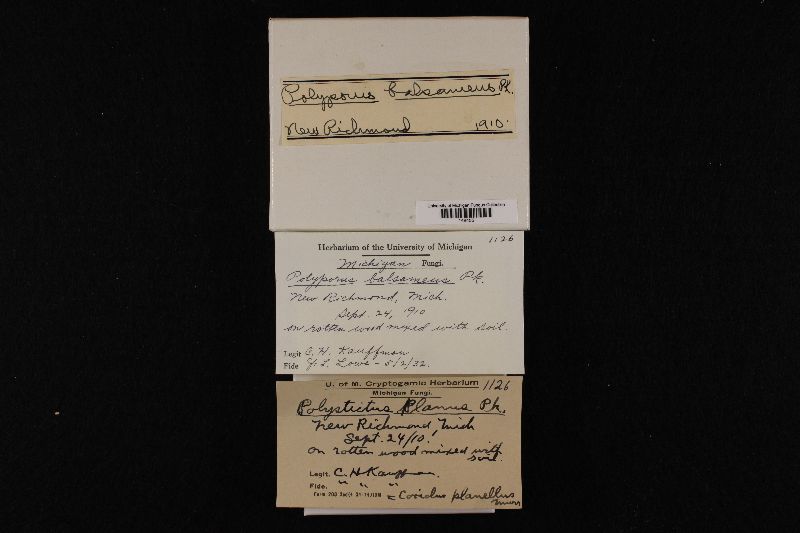 Polyporus balsameus Pk.
New Richmond 1910.
University of Michigan Fungus Collection
Herbarium of the University of Michigan 1126
Michigan Fungi.
Polyporus balsameus Pk.
New Richmond, Mich.
Sept. 24, 1910
on rotten wood mixed with soil.
Legit C. H. Kauffman
Fide J. L. Lowe - 5/2/32.
U. of M. Cryptogamic Herbarium 1126
Michigan Fungi.
Polystictus planus Pk.
New Richmond, Mich
Sept. 24/10.
On rotten wood mixed with
soil.
Legit. C. H. Kauffman.
Fide. " " "
= Coriolus planellus
Murr